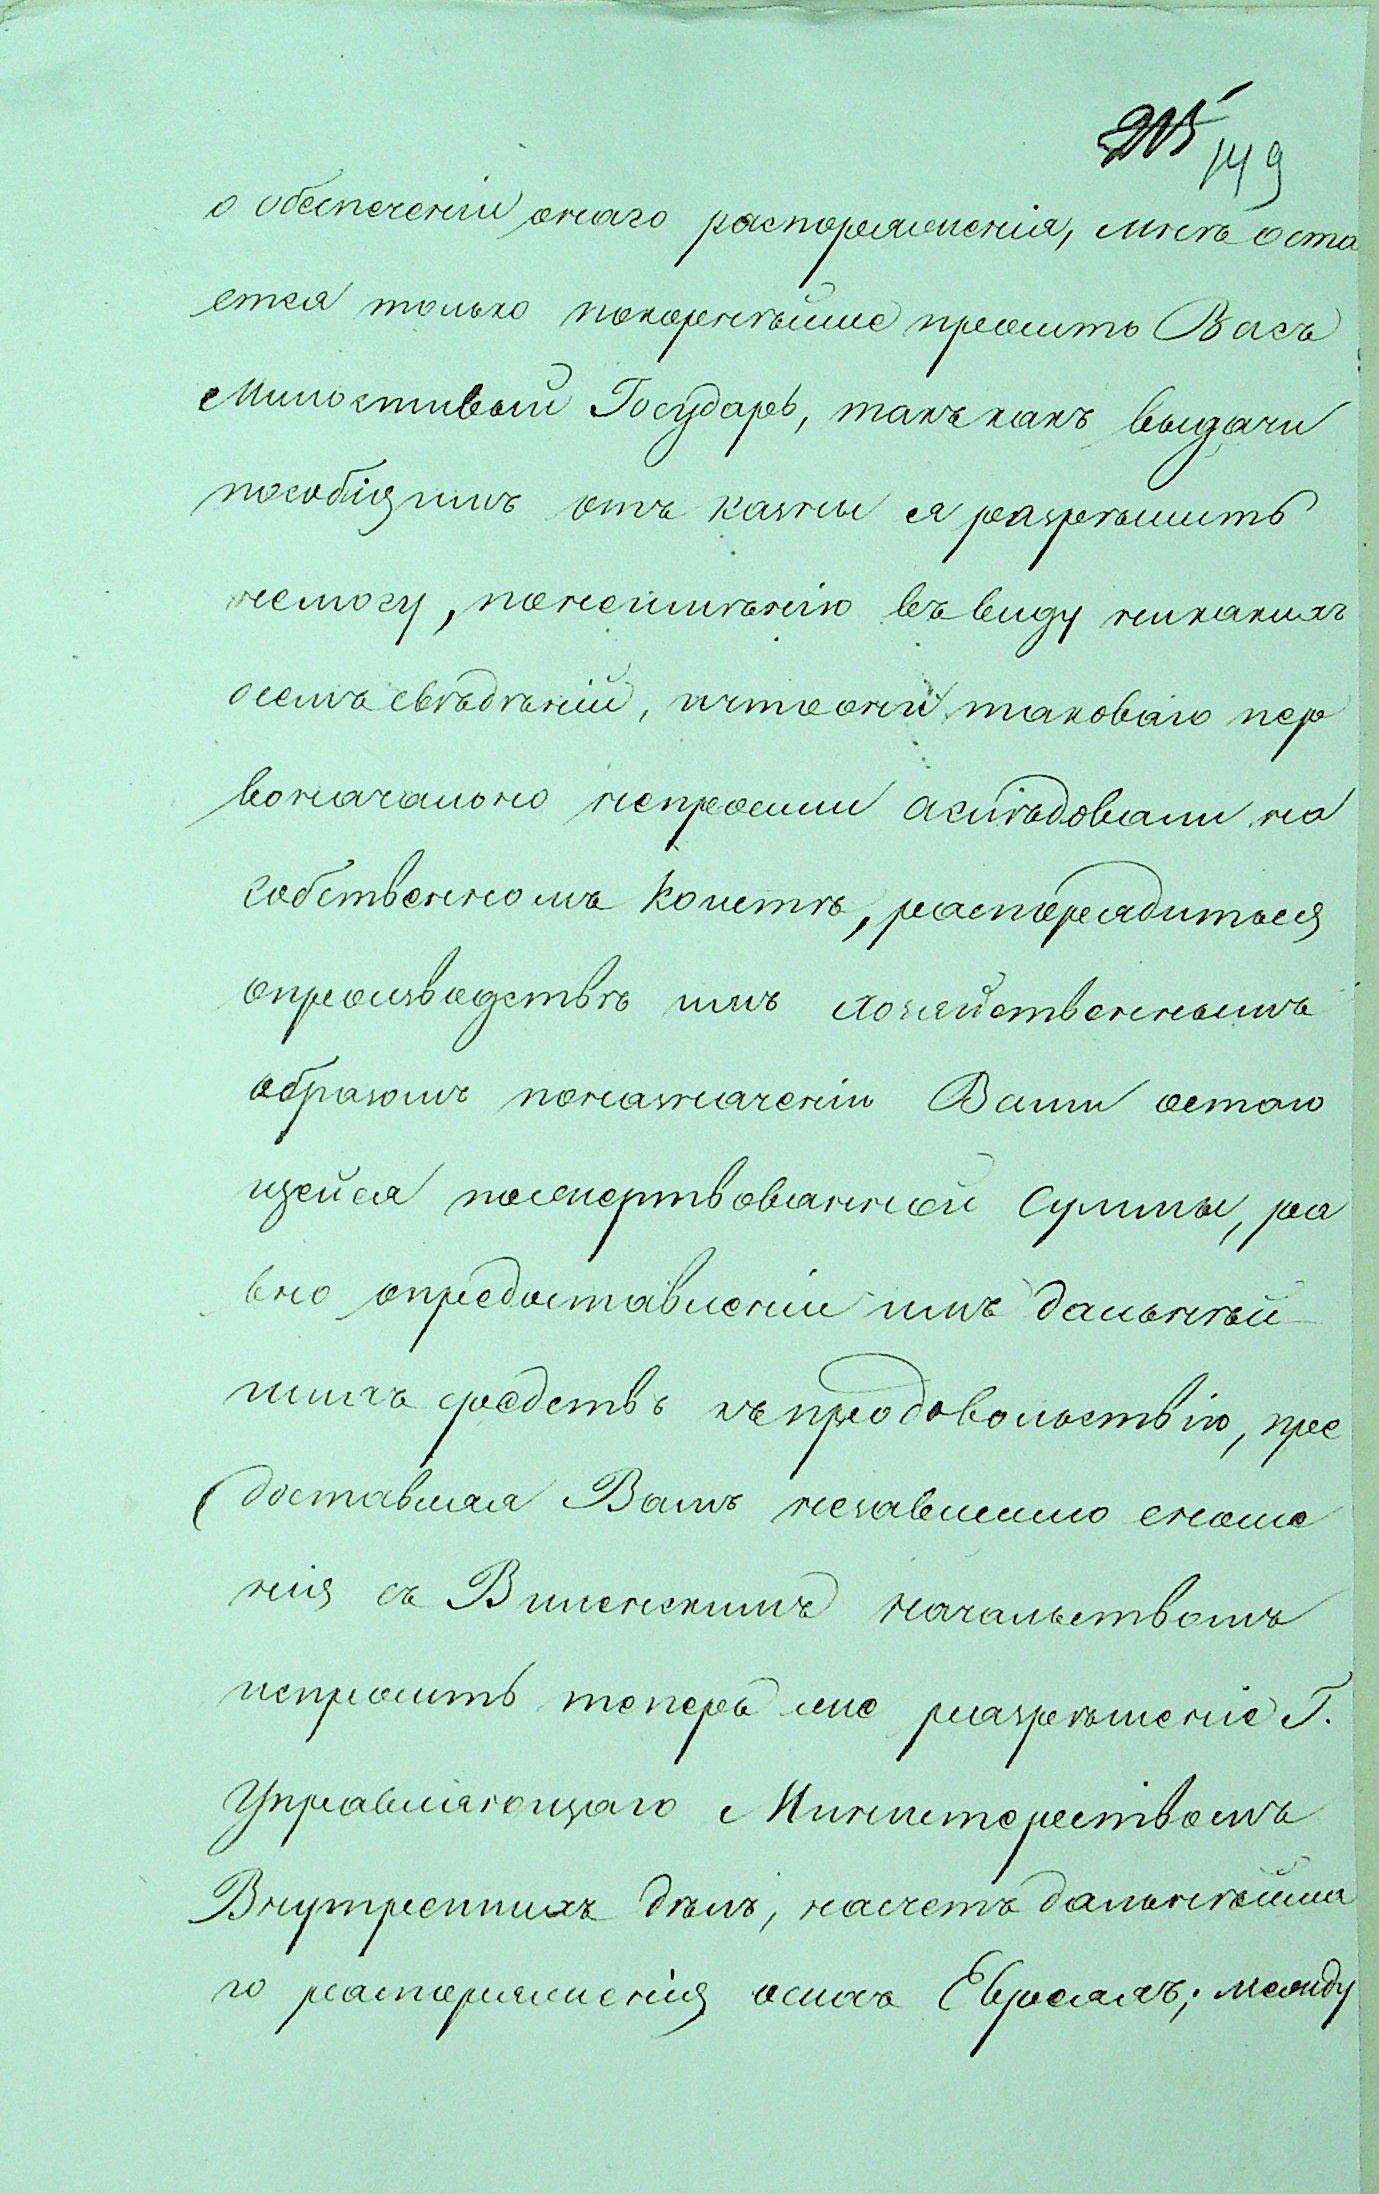 149
о обеспеченіи онаго распоряженія, мнѣ оста
ется только покорнѣйше просить Васъ
Милостивый Государь, такъ какъ выдачи
пособія имъ отъ казны я разрѣшить
немогу, понеимѣнію въ виду никакихъ
осемъ свѣдѣній, ичтоони таковаго пер
воначально непросили аслѣдовали на
собственномъ коштѣ, распорядиться
опроизводствѣ имъ хозяйственнымъ
образомъ поназначенію Вами остаю
щейся пожертвованной суммы, ра
вно опредоставленіи имъ дальнѣй
шихъ средствъ къпродовольствію, пре
доставляя Вамъ независимо сноше
нія съ Виленскимъ начальствомъ
испросить теперь же разрѣшеніе Г.
Управляющаго Министерствомъ
Внутреннихъ дѣлъ, насчетъ дальнѣйша
го распоряженія осихъ Евреяхъ; между